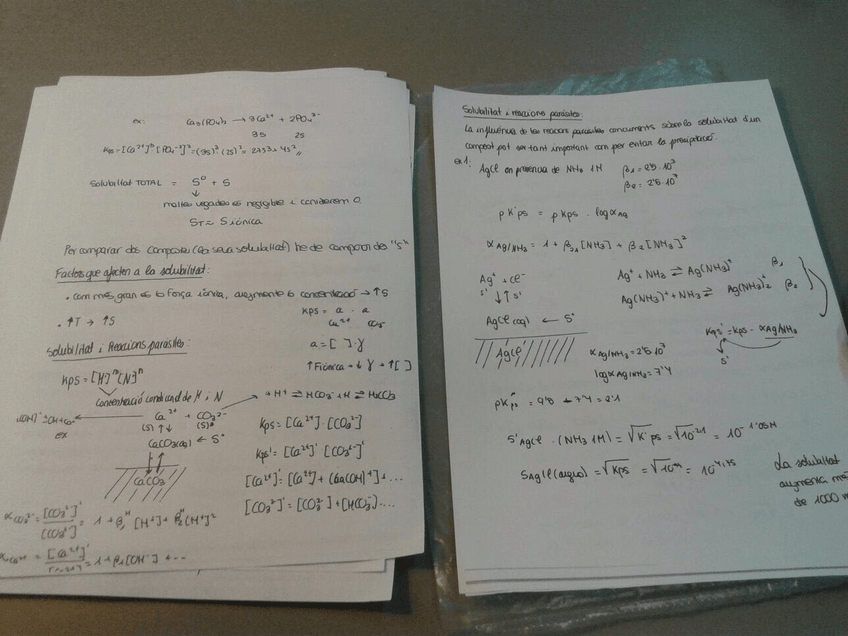 ex: Ca₃(PO₄)₂ → 3Ca²⁺ + 2PO₄³⁻
3S 2S
Kps = [Ca²⁺]³ [PO₄³⁻]² = (3S)³ (2S)² =
Solubilitat TOTAL = S⁰ + S
↓
moltes vegades és negligible i considerem 0
S_T ≈ S iònica
Per comparar dos compostos (la seva solubilitat) he de comparar les "S"
Factors que afecten a la solubilitat:
. com més gran és la força iònica, augmenta la concentració → ↑S
Kps = a · a
Ca²⁺ CO₃²⁻
. ↑T → ↑S
a = [ ] · γ
↑ F iònica → ↓ γ → ↑ [ ]
Solubilitat i Reaccions paràsites:
Kps = [M]ᵐ [N]ⁿ
Concentració condicional de M i N
Ca²⁺ + CO₃²⁻
+ H⁺ ⇌ HCO₃⁻ + H ⇌ H₂CO₃
ex
(S) ↑↓ (S)
CaCO₃(aq) ← S⁰
CaCO₃↓
Kps = [Ca²⁺] · [CO₃²⁻]
Kps' = [Ca²⁺]' [CO₃²⁻]'
[Ca²⁺]' = [Ca²⁺] + [Ca(OH)⁺] + ...
[CO₃²⁻]' = [CO₃²⁻] + [HCO₃⁻] ...
α CO₃²⁻ = [CO₃²⁻]' / [CO₃²⁻] = 1 + β₁ᴴ [H⁺] + β₂ᴴ [H⁺]²
α Ca²⁺ = [Ca²⁺]' / [Ca²⁺] = 1 + β₁ [OH⁻] + ...
Solubilitat i reaccions paràsites:
La influència de les reaccions paràsites concurrents sobre la solubilitat d'un
compost pot ser tant important com per evitar la precipitació.
ex 1: AgCl en presència de NH₃ 1M β₁ = 2'5·10³
β₂ = 2'5·10⁷
pK'ps = pKps · log α Ag
α Ag/NH₃ = 1 + β₁ [NH₃] + β₂ [NH₃]²
Ag⁺ + Cl⁻
Ag⁺ + NH₃ ⇌ Ag(NH₃)⁺ β₁
S' ↑↓ S'
Ag(NH₃)⁺ + NH₃ ⇌ Ag(NH₃)₂⁺ β₂
AgCl(aq) ← S⁰
Kps' = Kps · α Ag/NH₃
S'
AgCl↓
α Ag/NH₃ = 2'5·10⁷
log α Ag/NH₃ = 7'4
pK'ps = 9'5 - 7'4 = 2'1
S' AgCl · (NH₃ 1M) = √K'ps = √10⁻²'¹ = 10⁻¹'⁰⁵ M
S AgCl (aigua) = √Kps =
La solubilitat
augmenta més
de 1000